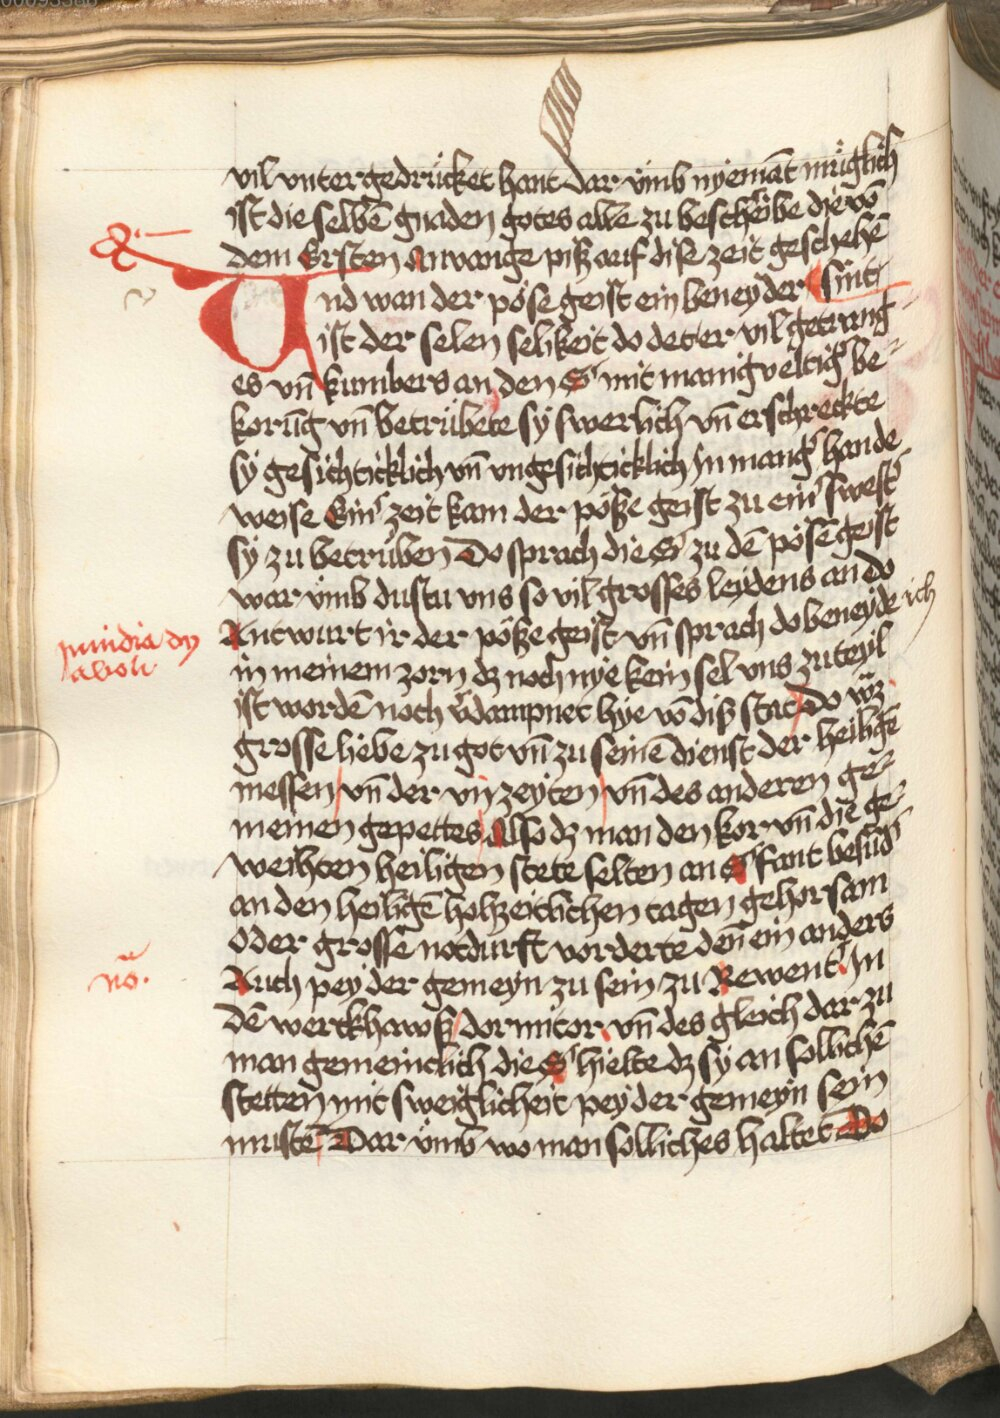 vil vntergedrücket hant dar vmb nyemāt müglich
ist die selbē gnaden gotes alle zu beschribe die vō
dem Ersten Anvange piß auf dise zeit geschehē
Vnd wan der pöse geist ein beneyder sint
ist der selen selikeit do det er vil getrang
es vn̄ kumbers an den S mit manigveltig be
korūg vn̄ betrübete sy swerlich vn̄ erschreckte
sy gesichticklich vn̄ vngesichticklich In mang hande
weise Ein zeit kam der pösze geist zu ein swest
sy zu betrüben Do sprach die S zu dē pösē geist
war vmb dustu vns so vil grosses leydens an do
Antwurt ir der pösze geist vn̄ sprach do beneyde ich
inuidia dy
aboli
in meinem zorn dz noch nye kein sel vns zu teyl
ist wordē noch vdampnet hye vō diß stat Do wz
grosse liebe zu got vn̄ zu seinē dienst der heiligē
messen vn̄ der vij zeyten vn̄ des anderen ge
meinen gepettes Also dz man den kor vn̄ die ge
weihten heiligen stete selten an S fant besūd
an den heiligē hohzeitlichen tagen gehorsam
oder grosse notdurft vorderte den̄ ein anders
Auch pey der gemeyn zu sein zu Rewent In
nō.
dē werckhawß dormitor vn̄ des gleich dar zu
man gemeinclich die S hielte dz sy an sollichē
stetten mit sweiglicheit pey der gemeyn sein
mustē Dar vmb wo man solliches haltet Do